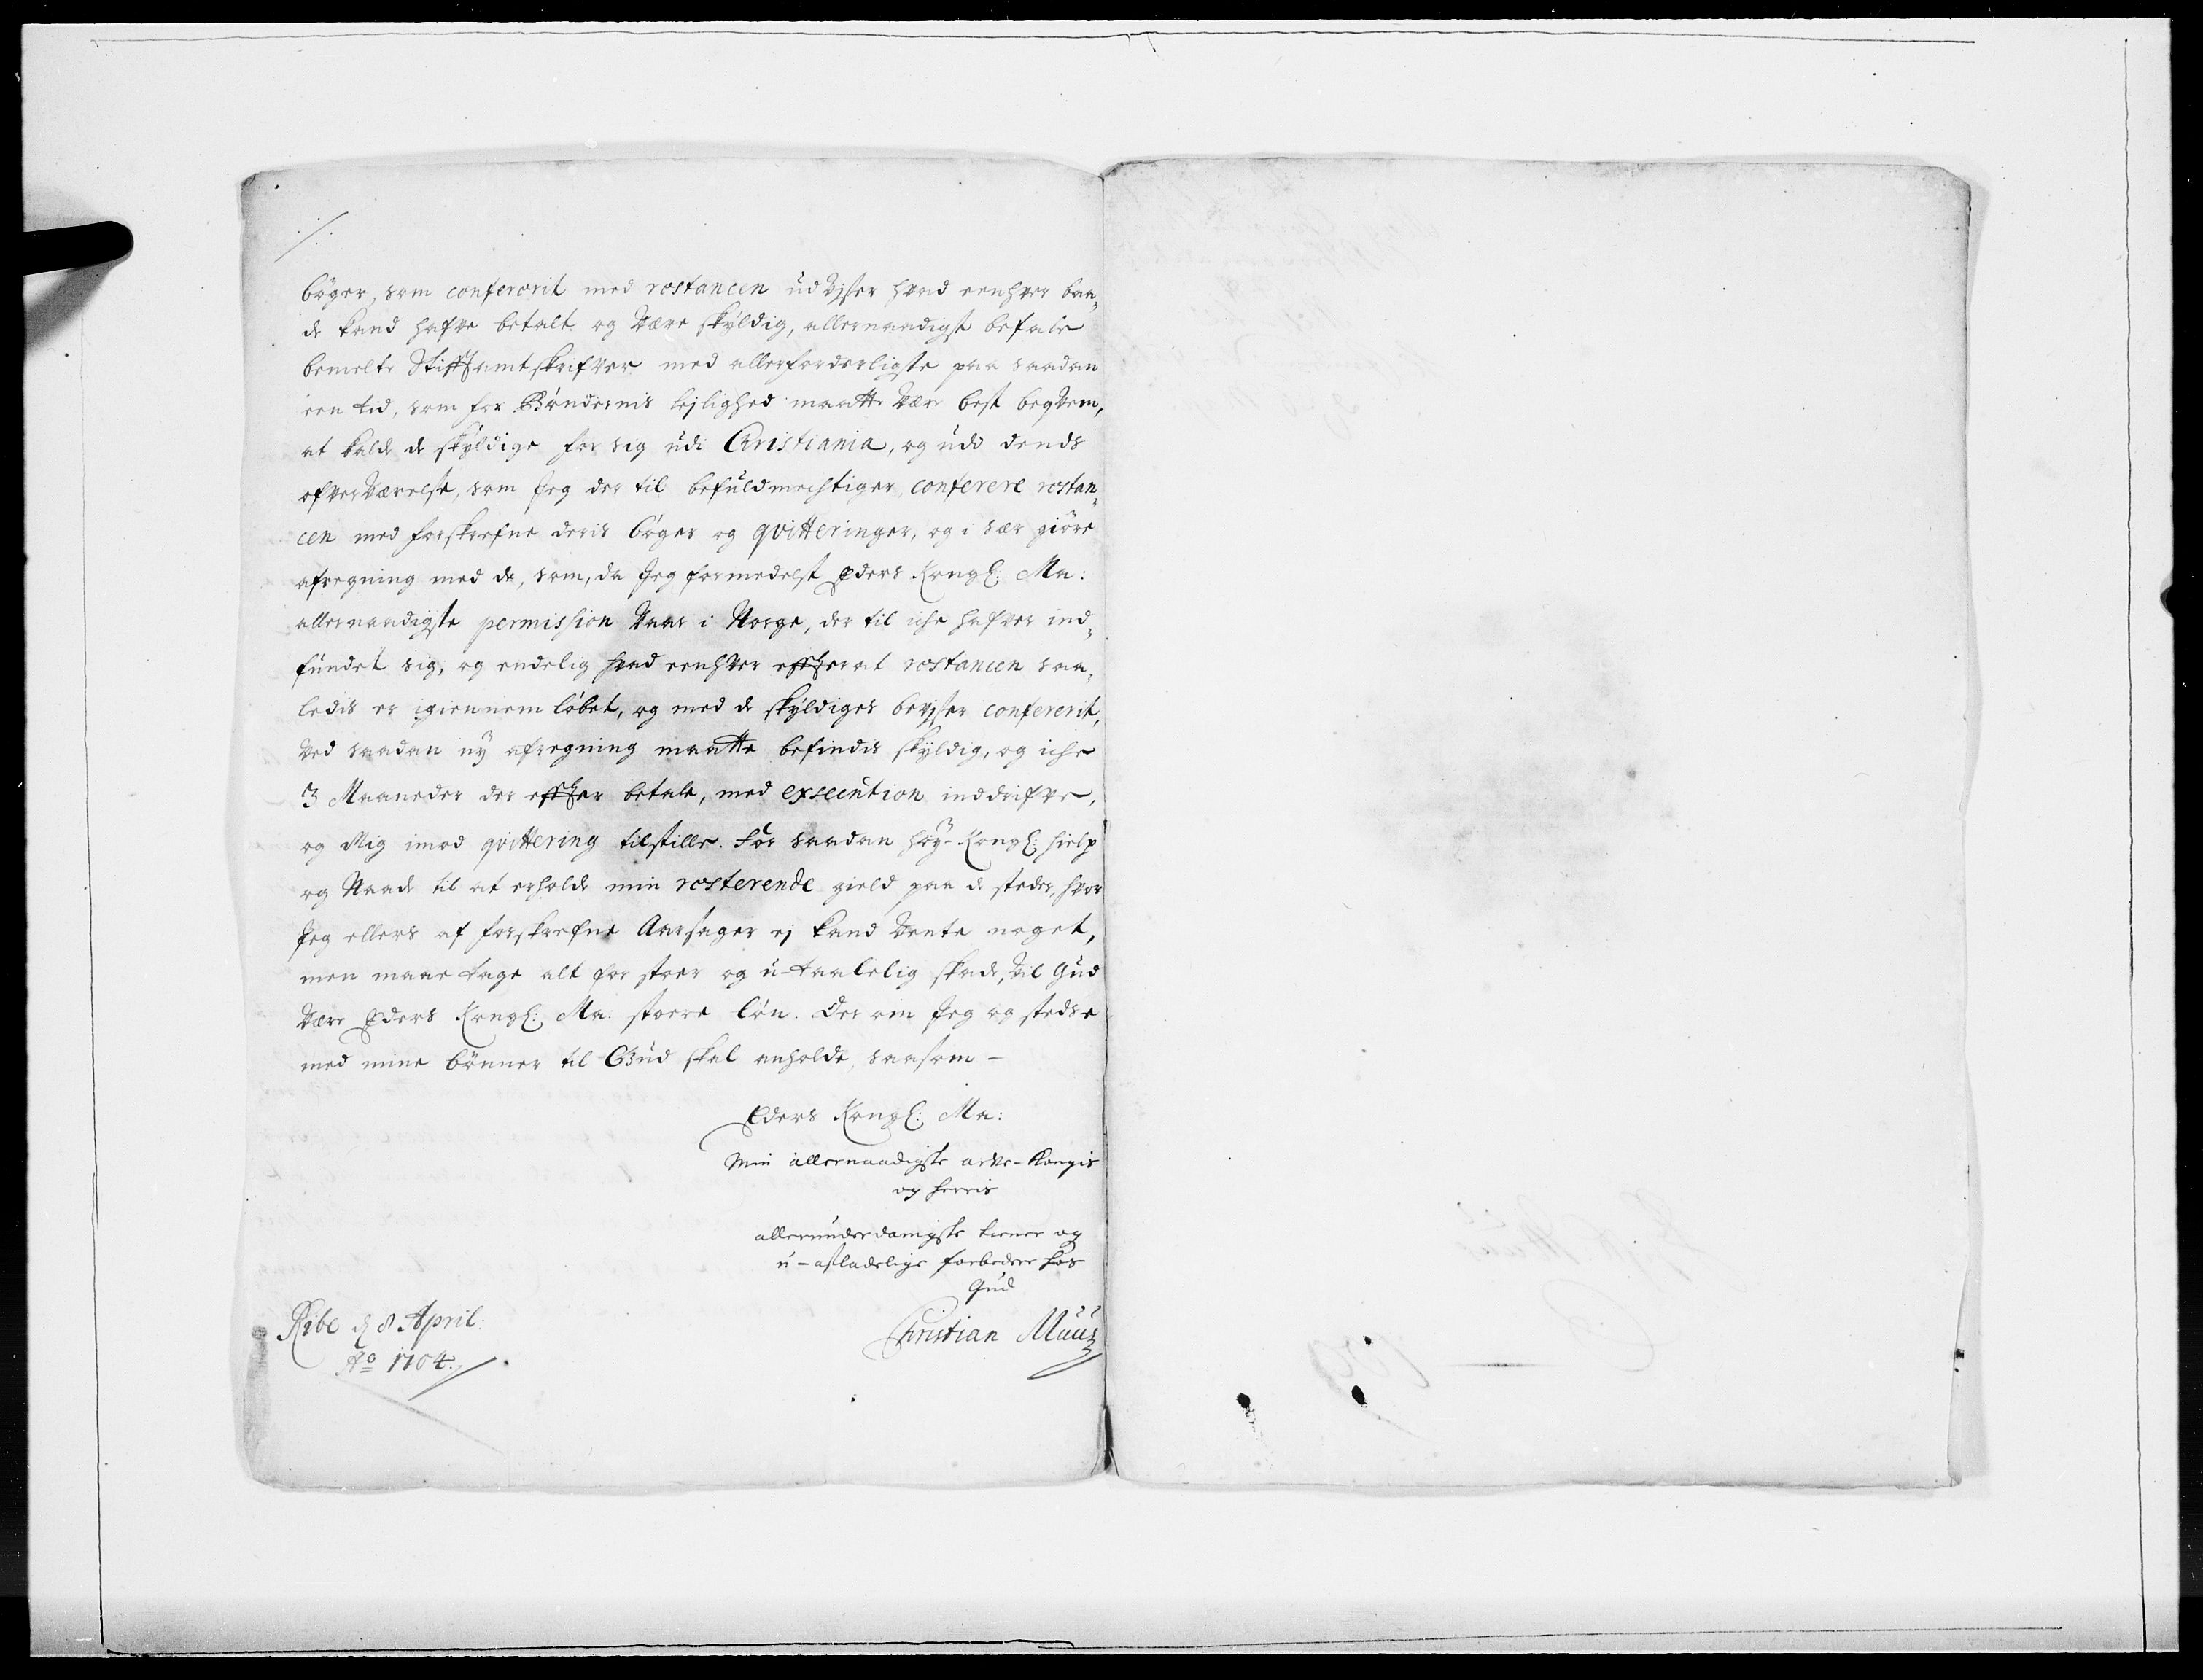 ./.
bøger, som confererit med restancen udvjser hvad eenhver baa¬
de kand hafve betalt og være skÿldig, allernaadigst befale
bemelte Stifftamtskrifver med allerforderligste paa saadan
een tid, som for Bøndernis lejlighed maatte være best beqvem,
at kalde de skÿldige for sig udi Christiania, og udi dends
ofverværelse, som Jeg der til befuldmechtiger, conferere restan¬
cen med forskrefne deris bøger og qvitteringer, og i sær giøre
afregning med de, som, da Jeg formedelst Eders Kongl: Ma:
allernaadigste permission vaar i Norge, der til iche hafver ind¬
fundet sig, og endelig hvad eenhver effter at restancen saa¬
ledis er igiennem løbet, og med de skÿldiges bevjser confererit,
ved saadan nÿ afregning maatte befindis skÿldig, og iche
3 Maaneder der effter betale, med execution inddrifve,
og Mig imod qvittering tilstille. For saadan høÿ-Kongl: hielp
og Naade til at erholde min resterende gield paa de steder, hvor
Jeg ellers af forskrefne Aarsager ej kand vente noget,
men maae tage alt for stoer og u-taalelig skade, vil Gud
være Eders Kongl: Ma: stoere løn. Der om Jeg og stedse
med mine bønner til Gud skal anholde, saasom -
Eders Kongl: Ma:
Min allernaadigste arve-Kongis
og herris
allerunderdanigste tiener og
u-afladelige forbedere hos
Gud
Christian Muus
Ribe d 8 April:
Ao 1704.